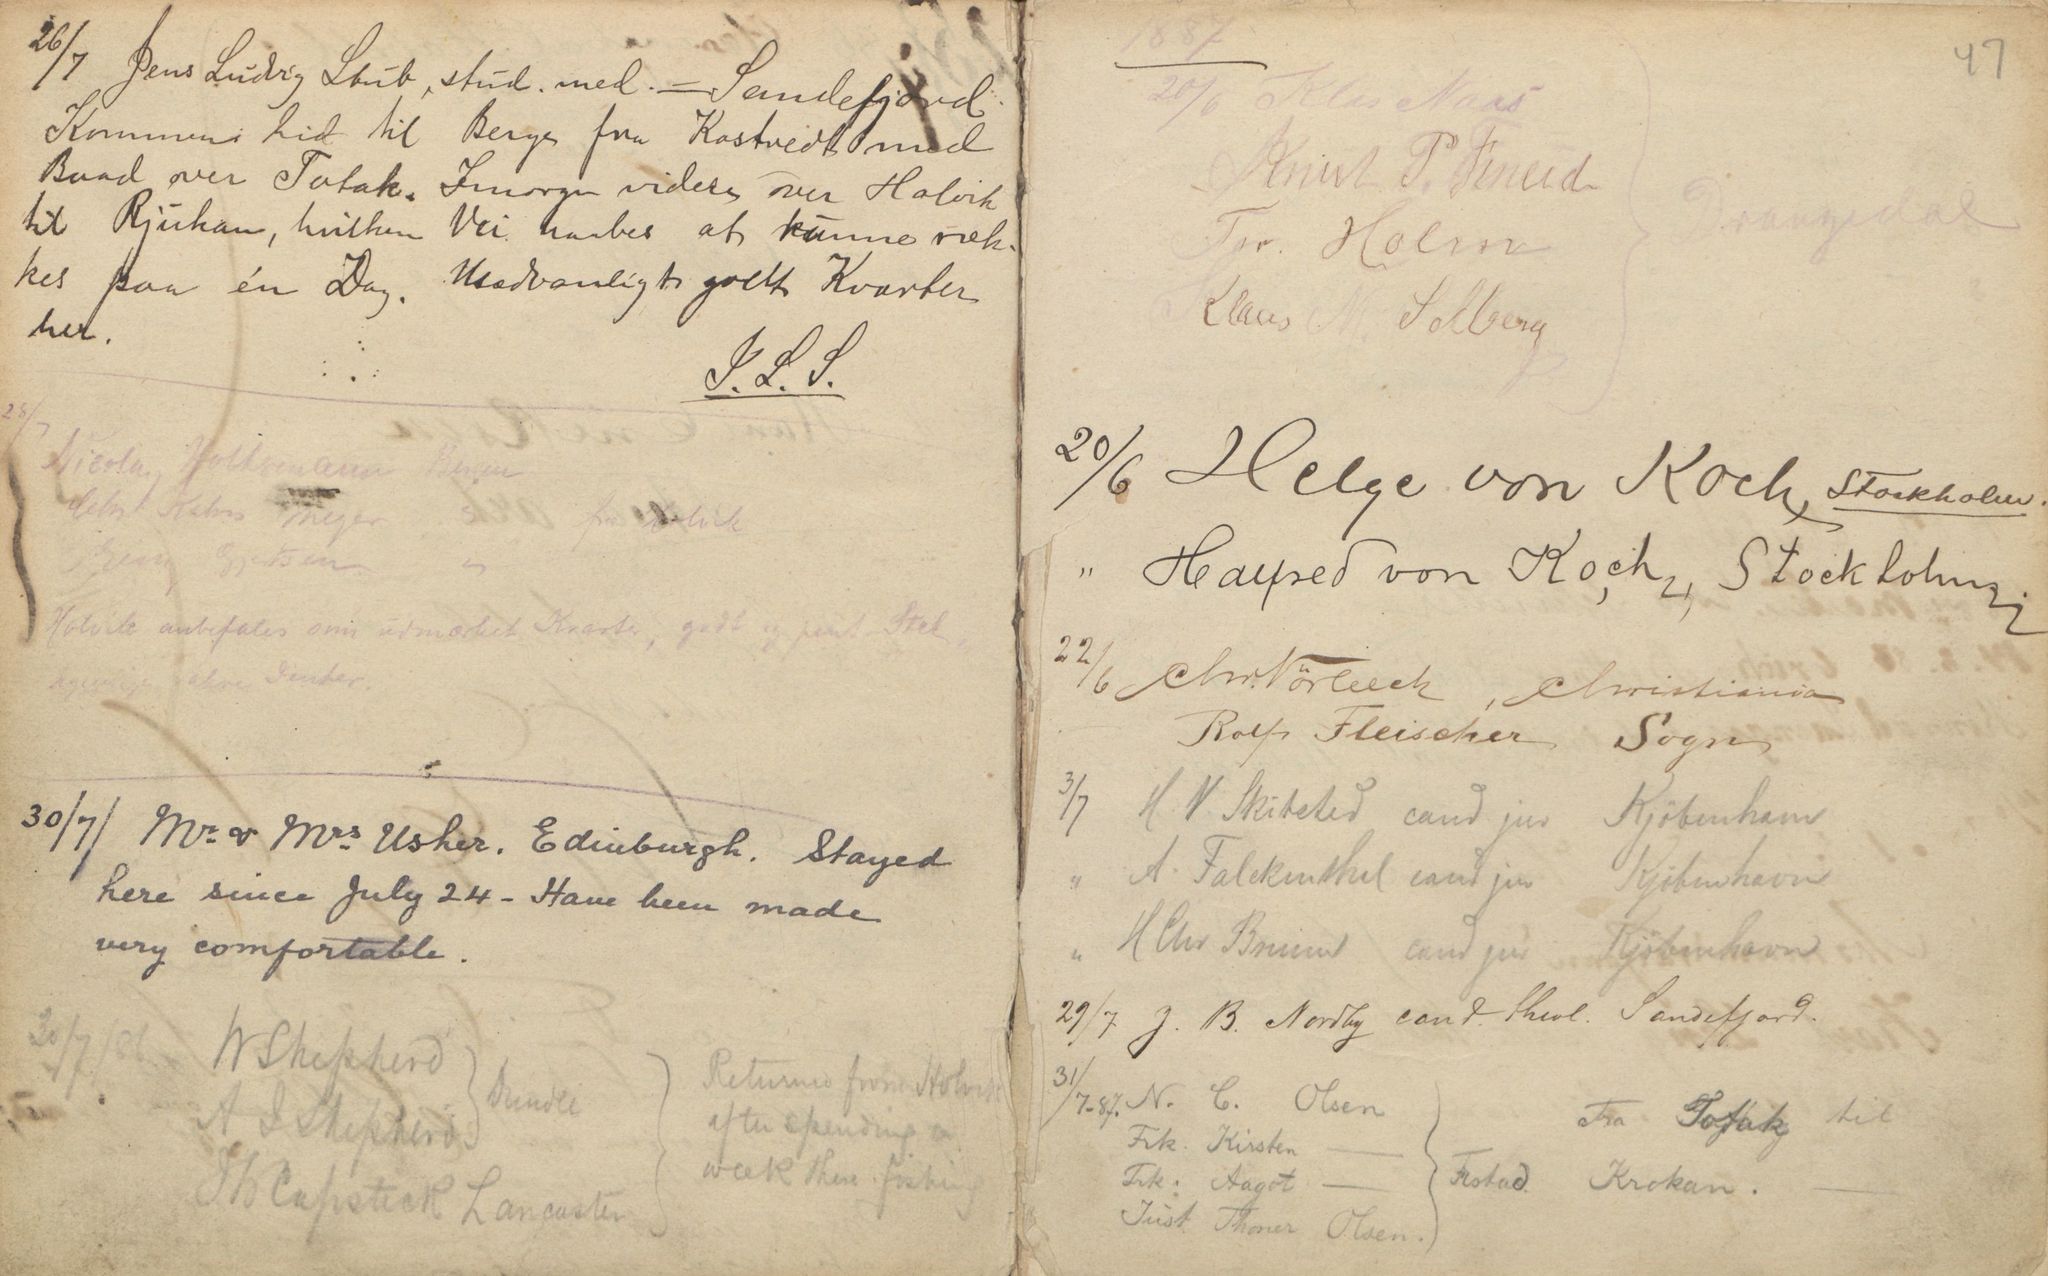 26/7 Jens Ludvig Stub, stud. med. = Sandefjord.
Kommen hid til Berge fra Kostvedt med
Baad over Totak. Imorgen videre over Holvik
til Rjukan, hvilken Vei haabes at kunne ræk-
kes paa én Dag. Usædvanligt godt Kvarter
her.
J. L. S.
28/7
Nicolay Bergen
Meyer " fra Holvik
"
Holvik anbefales som udmærket Kvarter, godt og pent Stel,
30/7/ Mr. & Mrs. Usher. Edinburgh. Stayed
here since July 24 - Have been made
very comfortable.
30/7/86 W Shepherd
A J Shepherd } Dundee
Capstick Lancaster
Returned from Holvik
after spending a
week there fishing
47
1887
20/6 Klas Naas
Knut P.
Tor. Holm
Klaus M. Solberg
Drangedal
20/6 Helge von Koch, Stockholm.
" Halfred von Koch, Stockholm
22/6 Chr. , Christiania
Rolf Fleischer Sogn
3/7 H V Skibsted cand jur Kjöbenhavn
" A. Falckenthal cand jur Kjöbenhavn
" H Chr cand jur Kjöbenhavn
29/7 J. B. Nordby cand. theol. Sandefjord.
31/7-87. N. C. Olsen
Frk. Kirsten —
Frk. Aagot —
Just Thoner Olsen.
Fra Totak til
Krokan. —